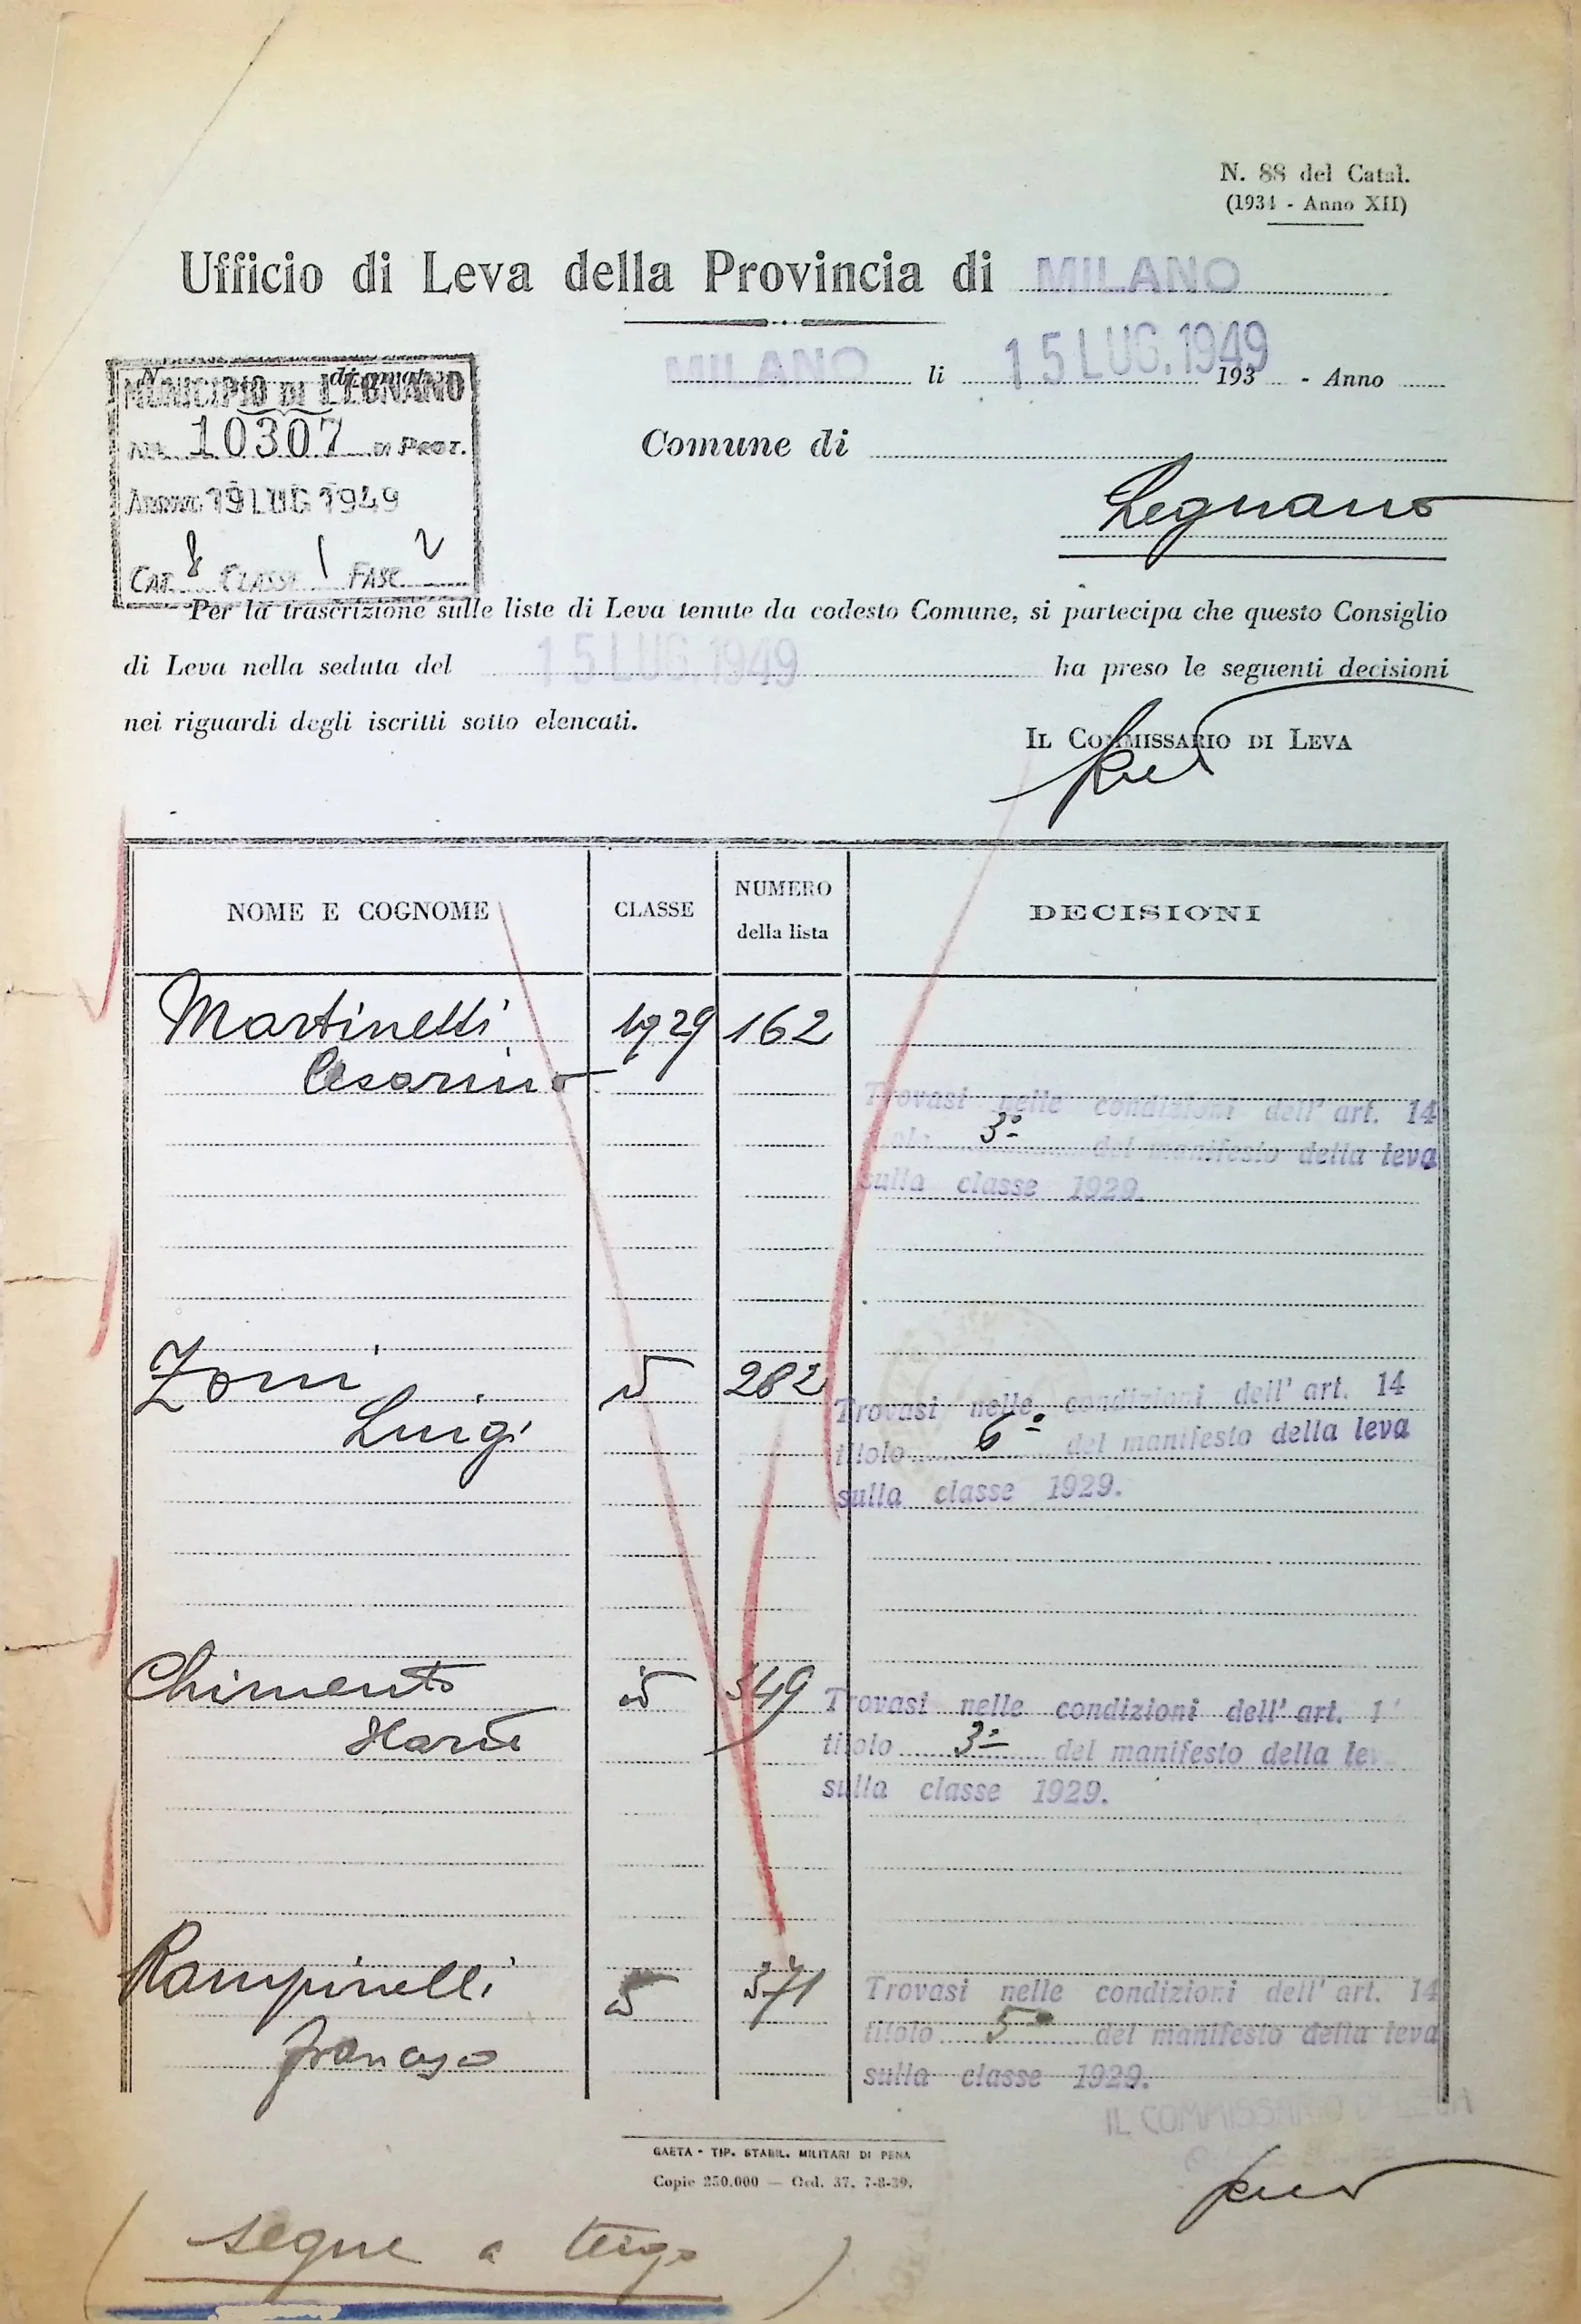 N. 88 del Catal.
(1934 - Anno XII)
Ufficio di Leva della Provincia di MILANO
MILANO li 15 LUG. 1949 193 - Anno
MUNICIPIO DI LEGNANO
N. 10307 DI PROT.
ARRIVO 19 LUG 1949
CAT. 8 CLASSE 1 FASC. 2
Comune di
Legnano
Per la trascrizione sulle liste di Leva tenute da codesto Comune, si partecipa che questo Consiglio
di Leva nella seduta del 15 LUG. 1949 ha preso le seguenti decisioni
nei riguardi degli iscritti sotto elencati.
IL COMMISSARIO DI LEVA
NOME E COGNOME CLASSE NUMERO della lista DECISIONI
Martinelli 1929 162
Cesarino
Trovasi nelle condizioni dell' art. 14
titolo 3° del manifesto della leva
sulla classe 1929.
Zoni id 282
Luigi
Trovasi nelle condizioni dell' art. 14
titolo 6° del manifesto della leva
sulla classe 1929.
Chimento id 349
Trovasi nelle condizioni dell' art. 1
titolo 3° del manifesto della lev
sulla classe 1929.
Rampinelli id 371
Francesco
Trovasi nelle condizioni dell' art. 14
titolo 5° del manifesto della leva
sulla classe 1929.
IL COMMISSARIO DI LEVA
GAETA - TIP. STABIL. MILITARI DI PENA
Copie 250.000 — Ord. 37. 7-8-39.
( segue a tergo )